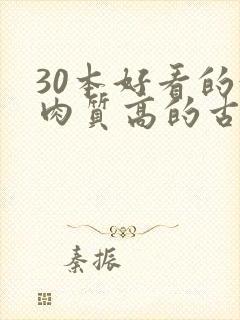 30本好看的
肉质高的古
秦振